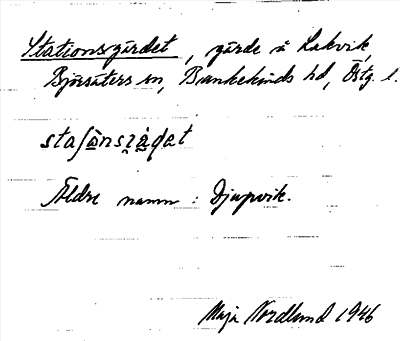 Stationsgärdet, gärde å Lakvik,
Björsäters sn, Bankekinds hd, Östg. l.
Äldre namn: Djupvik.
Maja Nordlund 1946